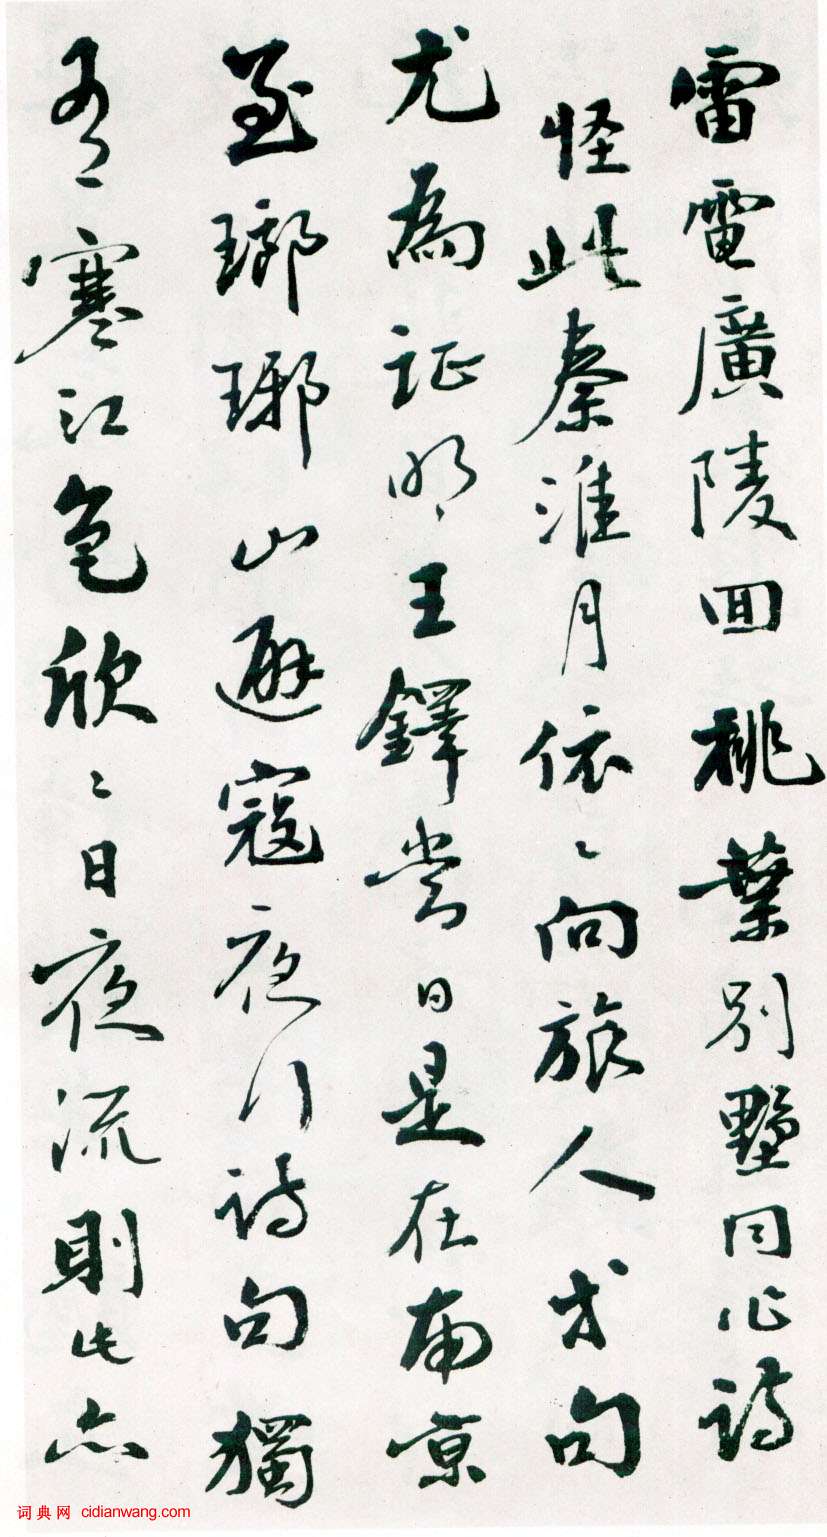 雷電廣陵回桃葉別墅同作詩
怪此秦淮月依〻向旅人才句
尤為証明王鐸當日是在南京
至瑯琊山避寇夜行詩句獨
有寒江色欣〻日夜流則此亦
词典网 cidianwang.com